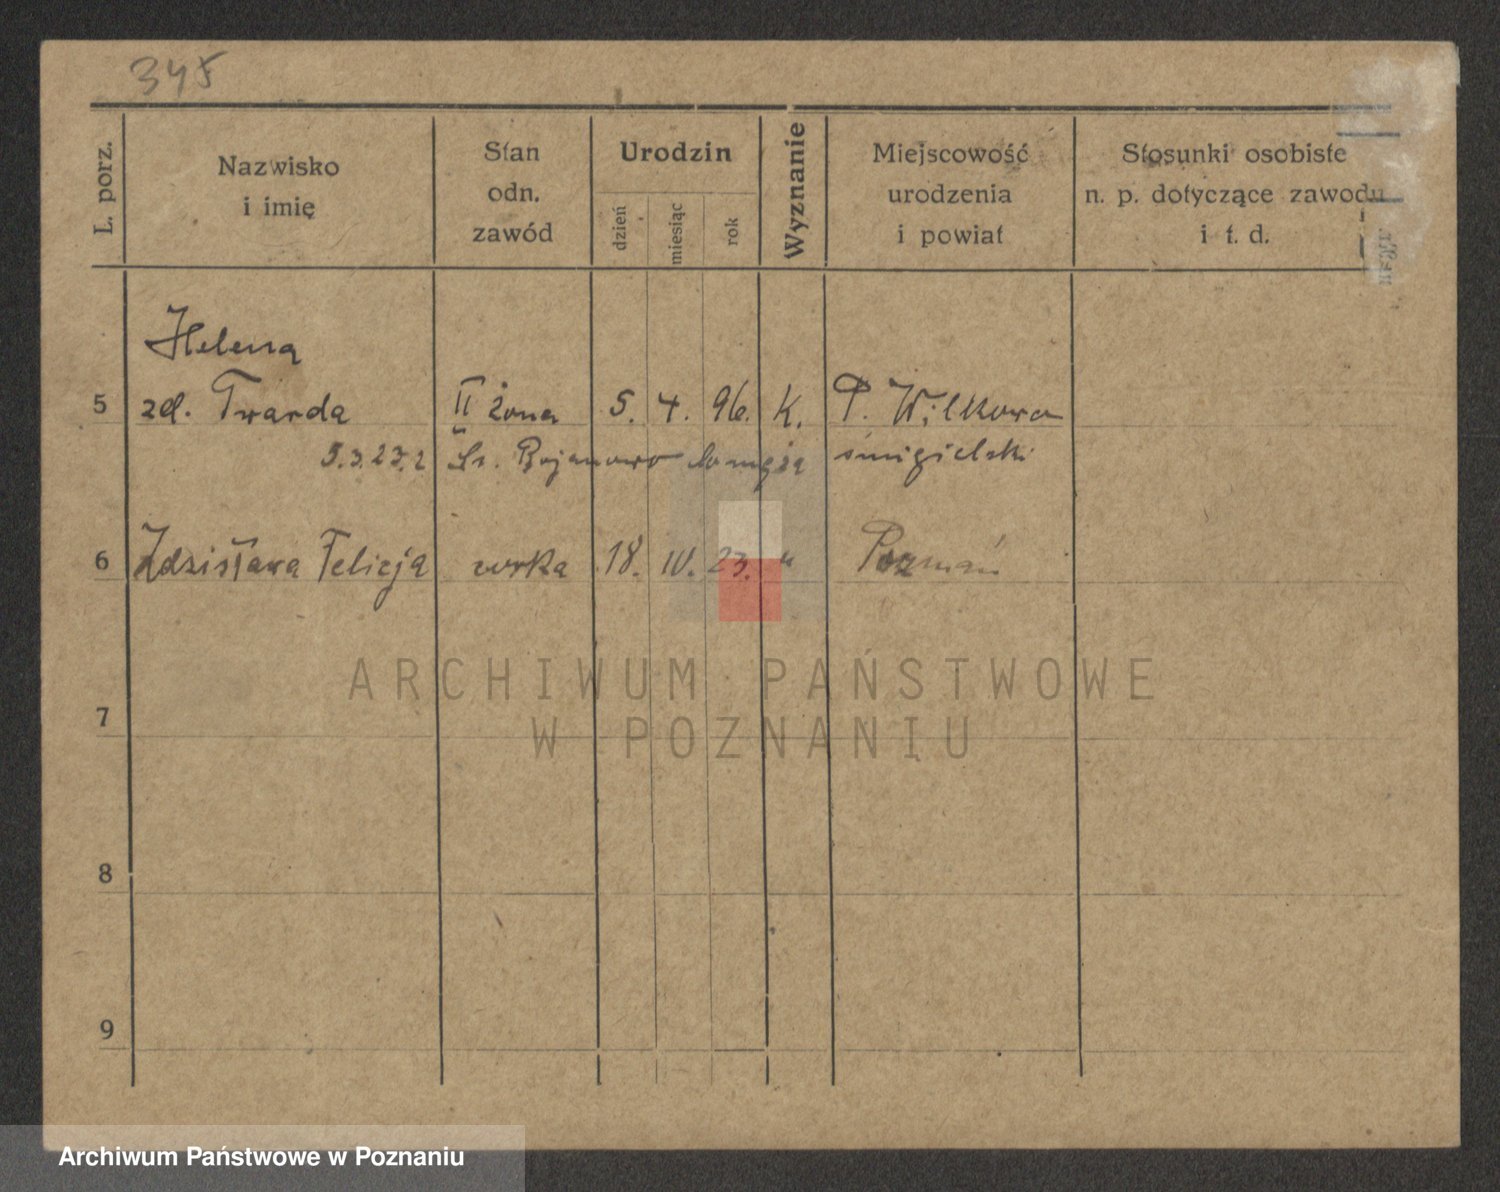 345
L. porz.
Nazwisko
i imię
Stan
odn.
zawód
Urodzin
dzień
miesiąc
rok
Wyznanie
Miejscowość
urodzenia
i powiat
Stosunki osobiste
n. p. dotyczące zawodu
i t. d.
Helena
5 zd. Twarda II żona 5. 4. 96. K. P. Wilkowo
5.3.23. z Bojanowo do męża śmigielski
6 Zdzisława Felicja córka 18. IV. 23. " Poznań
ARCHIWUM PAŃSTWOWE
W POZNANIU
7
8
9
Archiwum Państwowe w Poznaniu